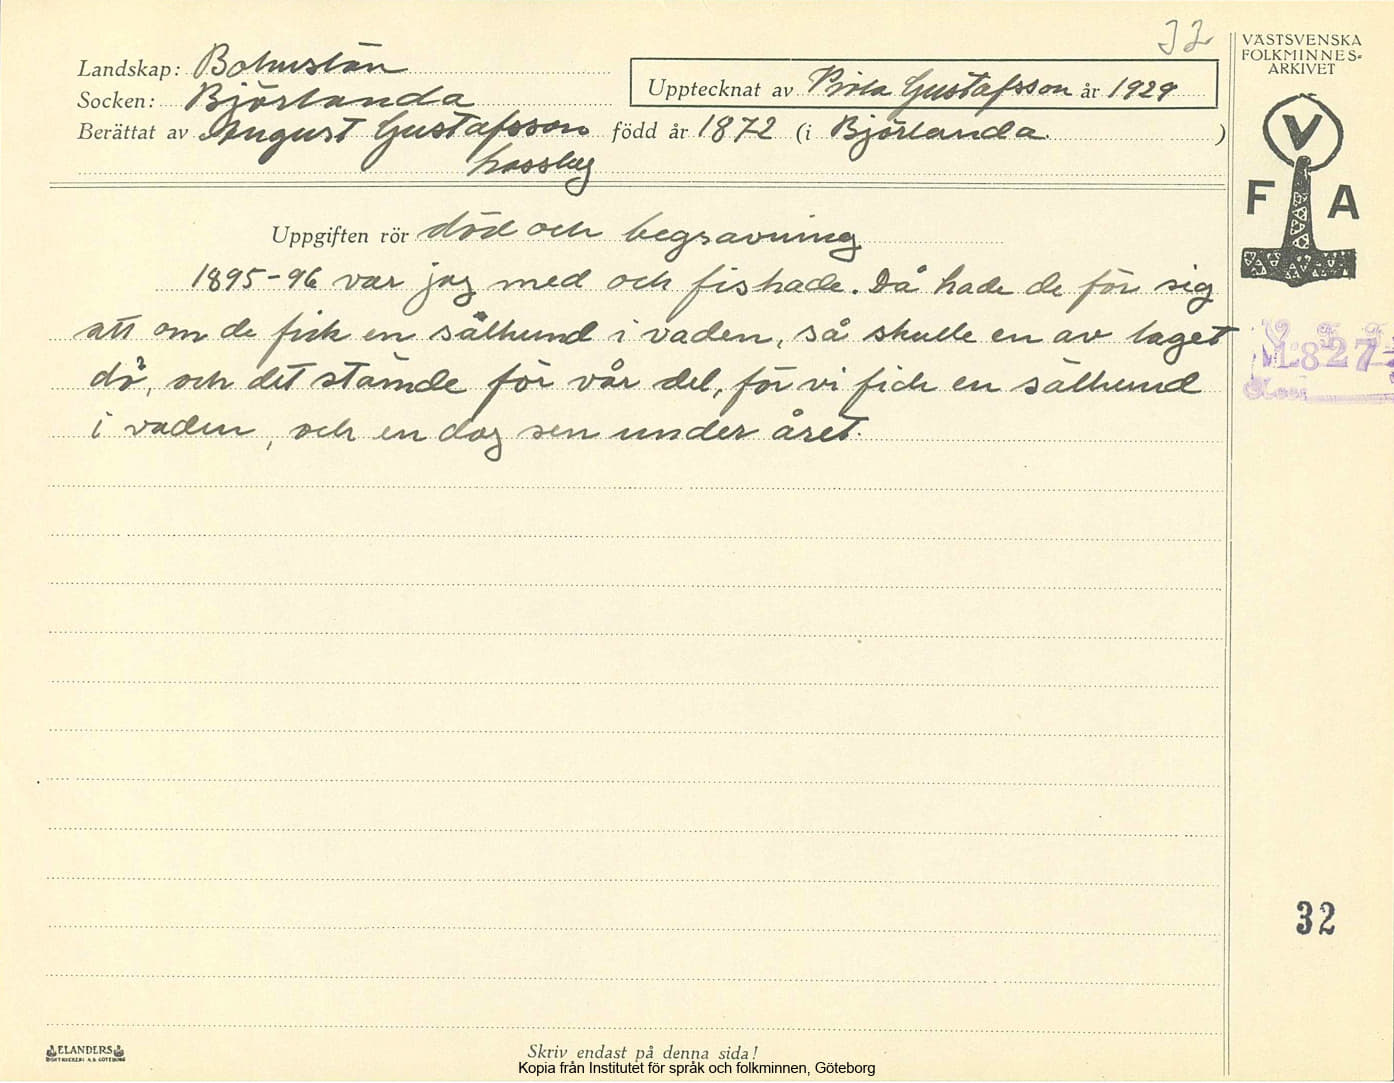 32
VÄSTSVENSKA
FOLKMINNES-
ARKIVET
Landskap: Bohuslän
Socken: Björlanda
Upptecknat av Gustafsson år 1929
Berättat av August Gustafsson född år 1872 (i Björlanda. )
V
F A
Uppgiften rör död och begravning
1895-96 var jag med och fiskade. Då hade de för sig
att om de fick en sälhund i vaden, så skulle en av laget
dö, och det stämde för vår del, för vi fick en sälhund
i vaden, och en dog sen under året.
32
ELANDERS
Skriv endast på denna sida!
Kopia från Institutet för språk och folkminnen, Göteborg